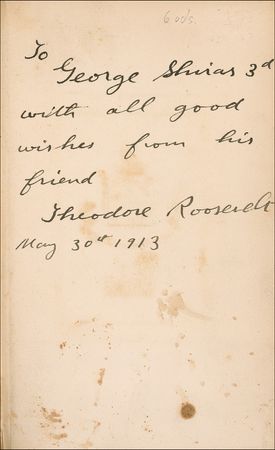 To
George Shiras 3d
with all good
wishes from his
friend
Theodore Roosevelt
May 30th 1913